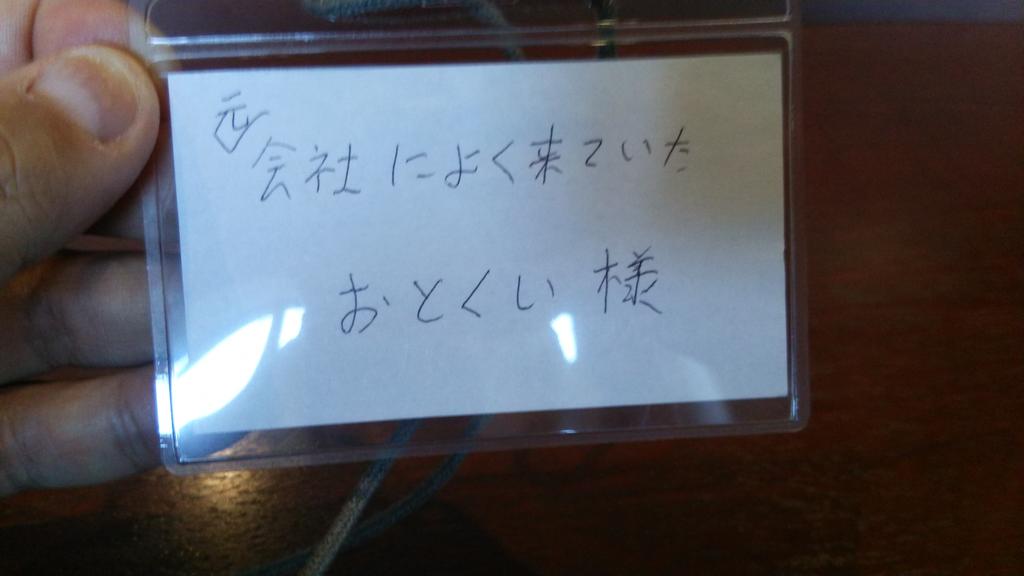 元会社によく来ていた
おとくい様